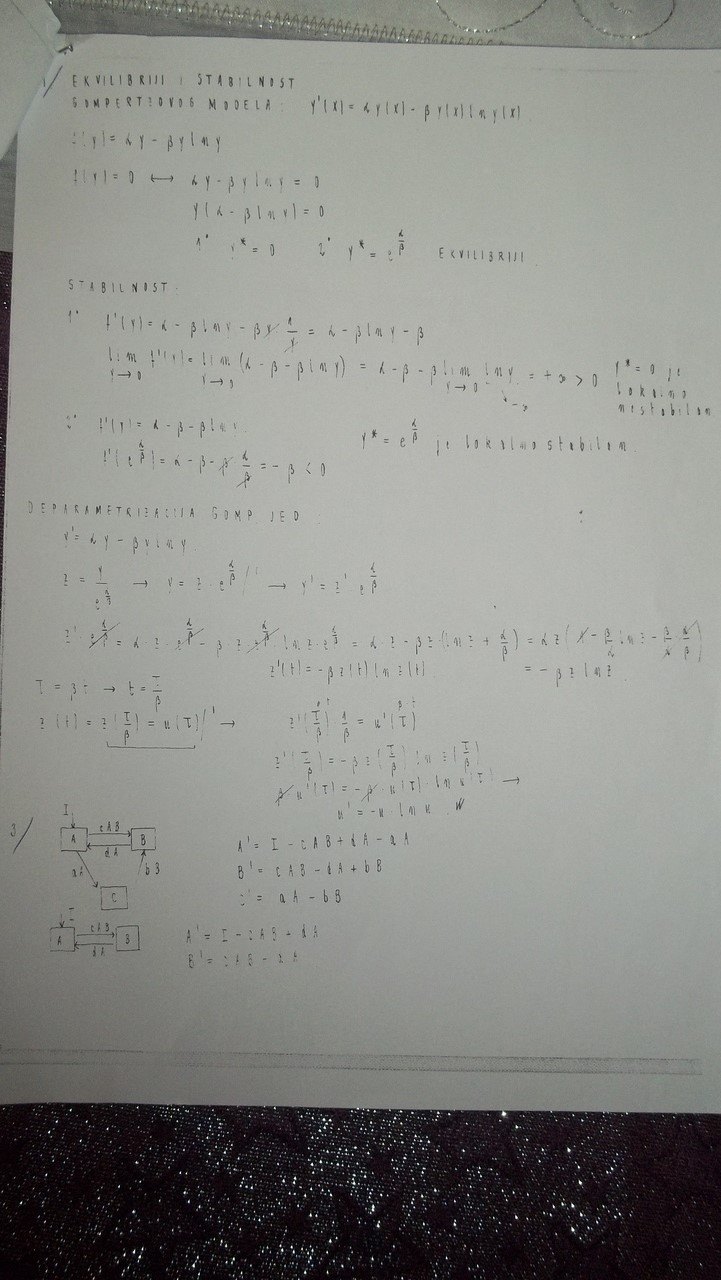 1/ EKVILIBRIJI I STABILNOST
GOMPERTZOVOG MODELA: y'(x) = αy(x) - βy(x)ln y(x)
f(y) = αy - βy ln y
f(y) = 0 ⟷ αy - βy ln y = 0
y(α - β ln y) = 0
1° y* = 0 2° y* = e^(α/β) EKVILIBRIJI.
STABILNOST:
1° f'(y) = α - β ln y - βy · 1/y = α - β ln y - β
lim y→0 f'(y) = lim y→0 (α - β - β ln y) = α - β - β lim y→0 ln y = +∞ > 0 y* = 0 je
→ -∞ lokalno
nestabilan
2° f'(y) = α - β - β ln y.
y* = e^(α/β) je lokalno stabilan.
f'(e^(α/β)) = α - β - β · α/β = -β < 0
DEPARAMETRIZACIJA GOMP. JED.
y' = αy - βy ln y.
z = y/e^(α/β) → y = z · e^(α/β) /' → y' = z' e^(α/β)
z' · e^(α/β) = α · z · e^(α/β) - β · z · e^(α/β) ln z · e^(α/β) = α · z - βz(ln z + α/β) = αz(1 - β/α ln z - β/α · α/β)
z'(t) = -βz(t) ln z(t) = -βz ln z
T = βt → t = T/β
z(t) = z(T/β) = u(T) /' → z'(T/β) · 1/β = u'(T)
z'(T/β) = -βz(T/β) ln z(T/β)
β u'(T) = -β · u(T) · ln u(T) →
u' = -u · ln u.
3/ I
A cAB B
dA
aA bB
C
A' = I - cAB + dA - aA
B' = cAB - dA + bB
C' = aA - bB
I
A cAB B
dA
A' = I - cAB + dA
B' = cAB - dA